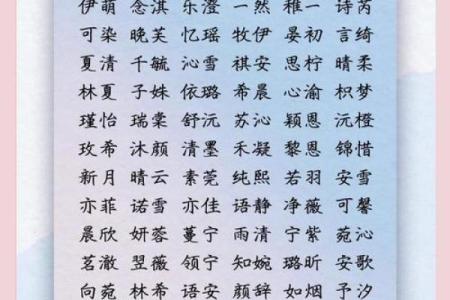 伊萌 念淇 乐澄 一然 稚一 诗芮
可染 晚芙 忆瑶 牧伊 晏初 言绮
夏清 千毓 沁雪 祺安 思柠 晴柔
林夏 子姝 依璐 希晨 心渝 枳梦
瑾怡 瑞棠 舒沅 苏沁 颖恩 沅橙
玫希 沐颜 清墨 禾凝 黎恩 锦惜
新月 晴云 素莞 纯熙 若羽 安雪
亦菲 诺雪 亦佳 语静 净薇 可馨
晨欣 妍蓉 蔓宁 雨清 宁紫 菀沁
茗澈 翌薇 领宁 知婉 璐昕 安歌
向菀 林希 语安 颜辞 如烟 予汐